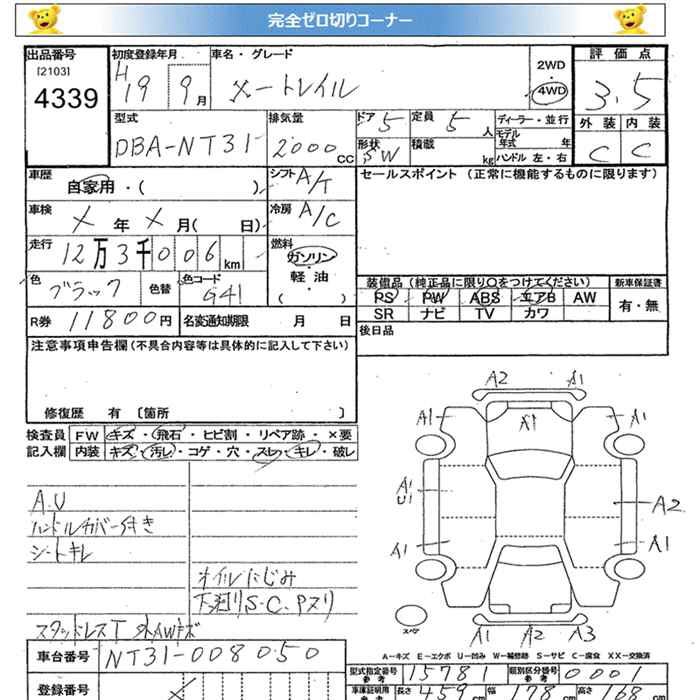 完全ゼロ切りコーナー
出品番号 [2103] 4339
初度登録年月 H19 9月
車名・グレード X-トレイル
2WD 4WD
評価点 3.5
外装 C 内装 C
型式 DBA-NT31
排気量 2000cc
ドア 5 定員 5人
形状 SW 積載 kg
ディーラー・並行
モデル年式 年
ハンドル 左・右
車歴 自家用・( )
シフト A/T
セールスポイント (正常に機能するものに限ります)
車検 X年X月( 日)
冷房 A/C
走行 12万3千006km
燃料 ガソリン・軽油・( )
色 ブラック 色替
色コード G41
装備品 (純正品に限り○をつけてください) 新車保証書
PS PW ABS エアB AW 有・無
SR ナビ TV カワ
R券 11800円 名変通知期限 月 日
後日品
注意事項申告欄 (不具合内容等は具体的に記入して下さい)
修復歴 有 〔箇所 〕
検査員 FW キズ・飛石・ヒビ割・リペア跡・×要
記入欄 内装 キズ・汚レ・コゲ・穴・スレ・キレ・破レ
A2 A1
A1 A1 A1
A1 U1 A2
A1 A1
A1 A2 A3
スペア
A.U
ハンドルカバー付き
シートキレ
オイルにじみ
下廻りS・C、Pヌリ
スタッドレスT 外AWキズ
A-キズ E-エクボ U-凹み W-補修跡 S-サビ C-腐食 XX-交換済
車台番号 NT31-008050
型式指定番号 参考 15781 類別区分番号 参考 0001
登録番号 X
車庫証明用 参考 長さ 459cm 幅 178cm 高さ 168cm